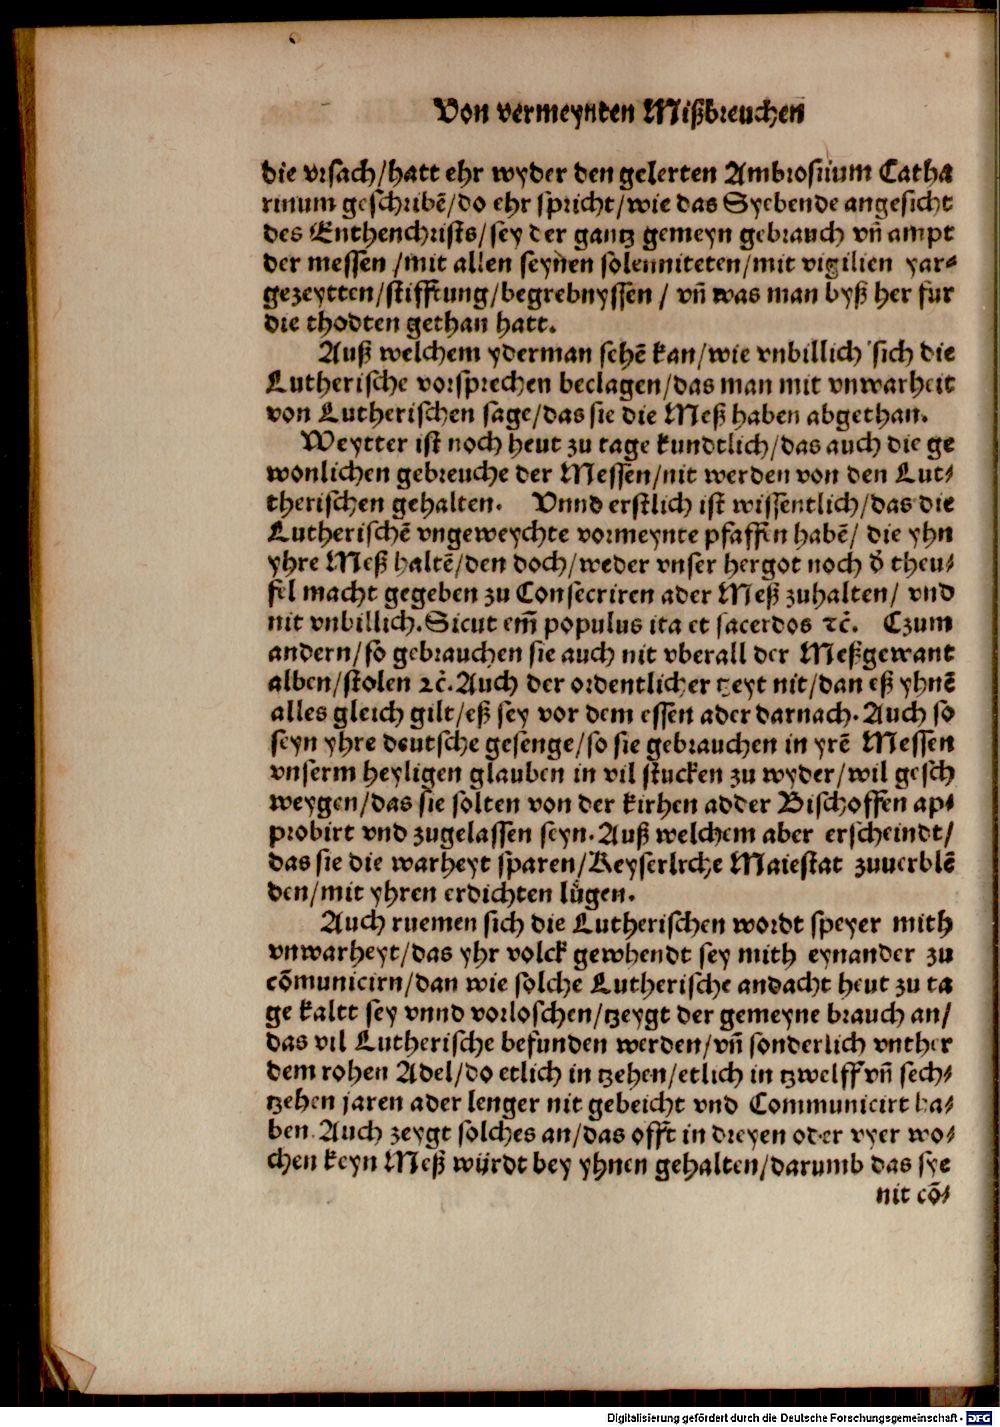 Von vermeynten Mißbreuchen
die vrsach/hatt ehr wyder den gelerten Ambrosiium Catha
rinum geschribẽ/do ehr spricht/wie das Syebende angesicht
des Enthenchrists/sey der gantz gemeyn gebrauch vñ ampt
der messen /mit allen seynen solenniteten/mit vigilien yar⸗
gezeytten/stifftung/begrebnyssen / vñ was man byß her fur
die thodten gethan hatt.
Auß welchem yderman sehẽ kan/wie vnbillich sich die
Lutherische vorsprechen beclagen/das man mit vnwarheit
von Lutherischen sage/das sie die Meß haben abgethan.
Weytter ist noch heut zu tage kundtlich/das auch die ge
wonlichen gebreuche der Messen/nit werden von den Lut⸗
therischen gehalten. Vnnd erstlich ist wissentlich/das die
Lutherischẽ vngeweychte vormeynte pfaffen habẽ/ die yhn
yhre Meß haltẽ/den doch/weder vnser hergot noch d̕ theu⸗
fel macht gegeben zu Consecriren ader Meß zuhalten/ vnd
nit vnbillich. Sicut em̃ populus ita et sacerdos ⁊c̃. Czum
andern/so gebrauchen sie auch nit vberall der Meßgewant
alben/stolen ⁊c̃. Auch der ordentlicher tzeyt nit/dan eß yhnẽ
alles gleich gilt/eß sey vor dem essen ader darnach. Auch so
seyn yhre deutsche gesenge/so sie gebrauchen in yrẽ Messen
vnserm heyligen glauben in vil stucken zu wyder/wil gesch
weygen/das sie solten von der kirhen adder Bischoffen ap⸗
probirt vnd zugelassen seyn. Auß welchem aber erscheindt/
das sie die warheyt sparen/Keyserlrche Maiestat zuuerblẽ
den/mit yhren erdichten lůgen.
Auch ruemen sich die Lutherischen wordt speyer mith
vnwarheyt/das yhr volck gewhendt sey mith eynander zu
cõmunicirn/dan wie solche Lutherische andacht heut zu ta
ge kaltt sey vnnd vorloschen/tzeygt der gemeyne brauch an/
das vil Lutherische befunden werden/vñ sonderlich vnther
dem rohen Adel/do etlich in tzehen/etlich in tzwelff vñ sech⸗
tzehen jaren ader lenger nit gebeicht vnd Communicirt ha⸗
ben. Auch zeygt solches an/das offt in dreyen oder vyer wo⸗
chen keyn Meß würdt bey yhnen gehalten/darumb das sye
nit cõ⸗
Digitalisierung gefördert durch die Deutsche Forschungsgemeinschaft - DFG